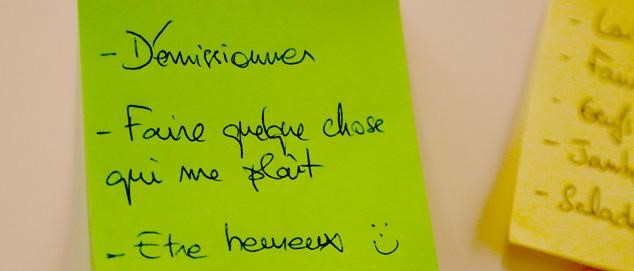 - Démissionner
- Faire quelque chose
qui me plaît
- Etre heureux :)
- Salad